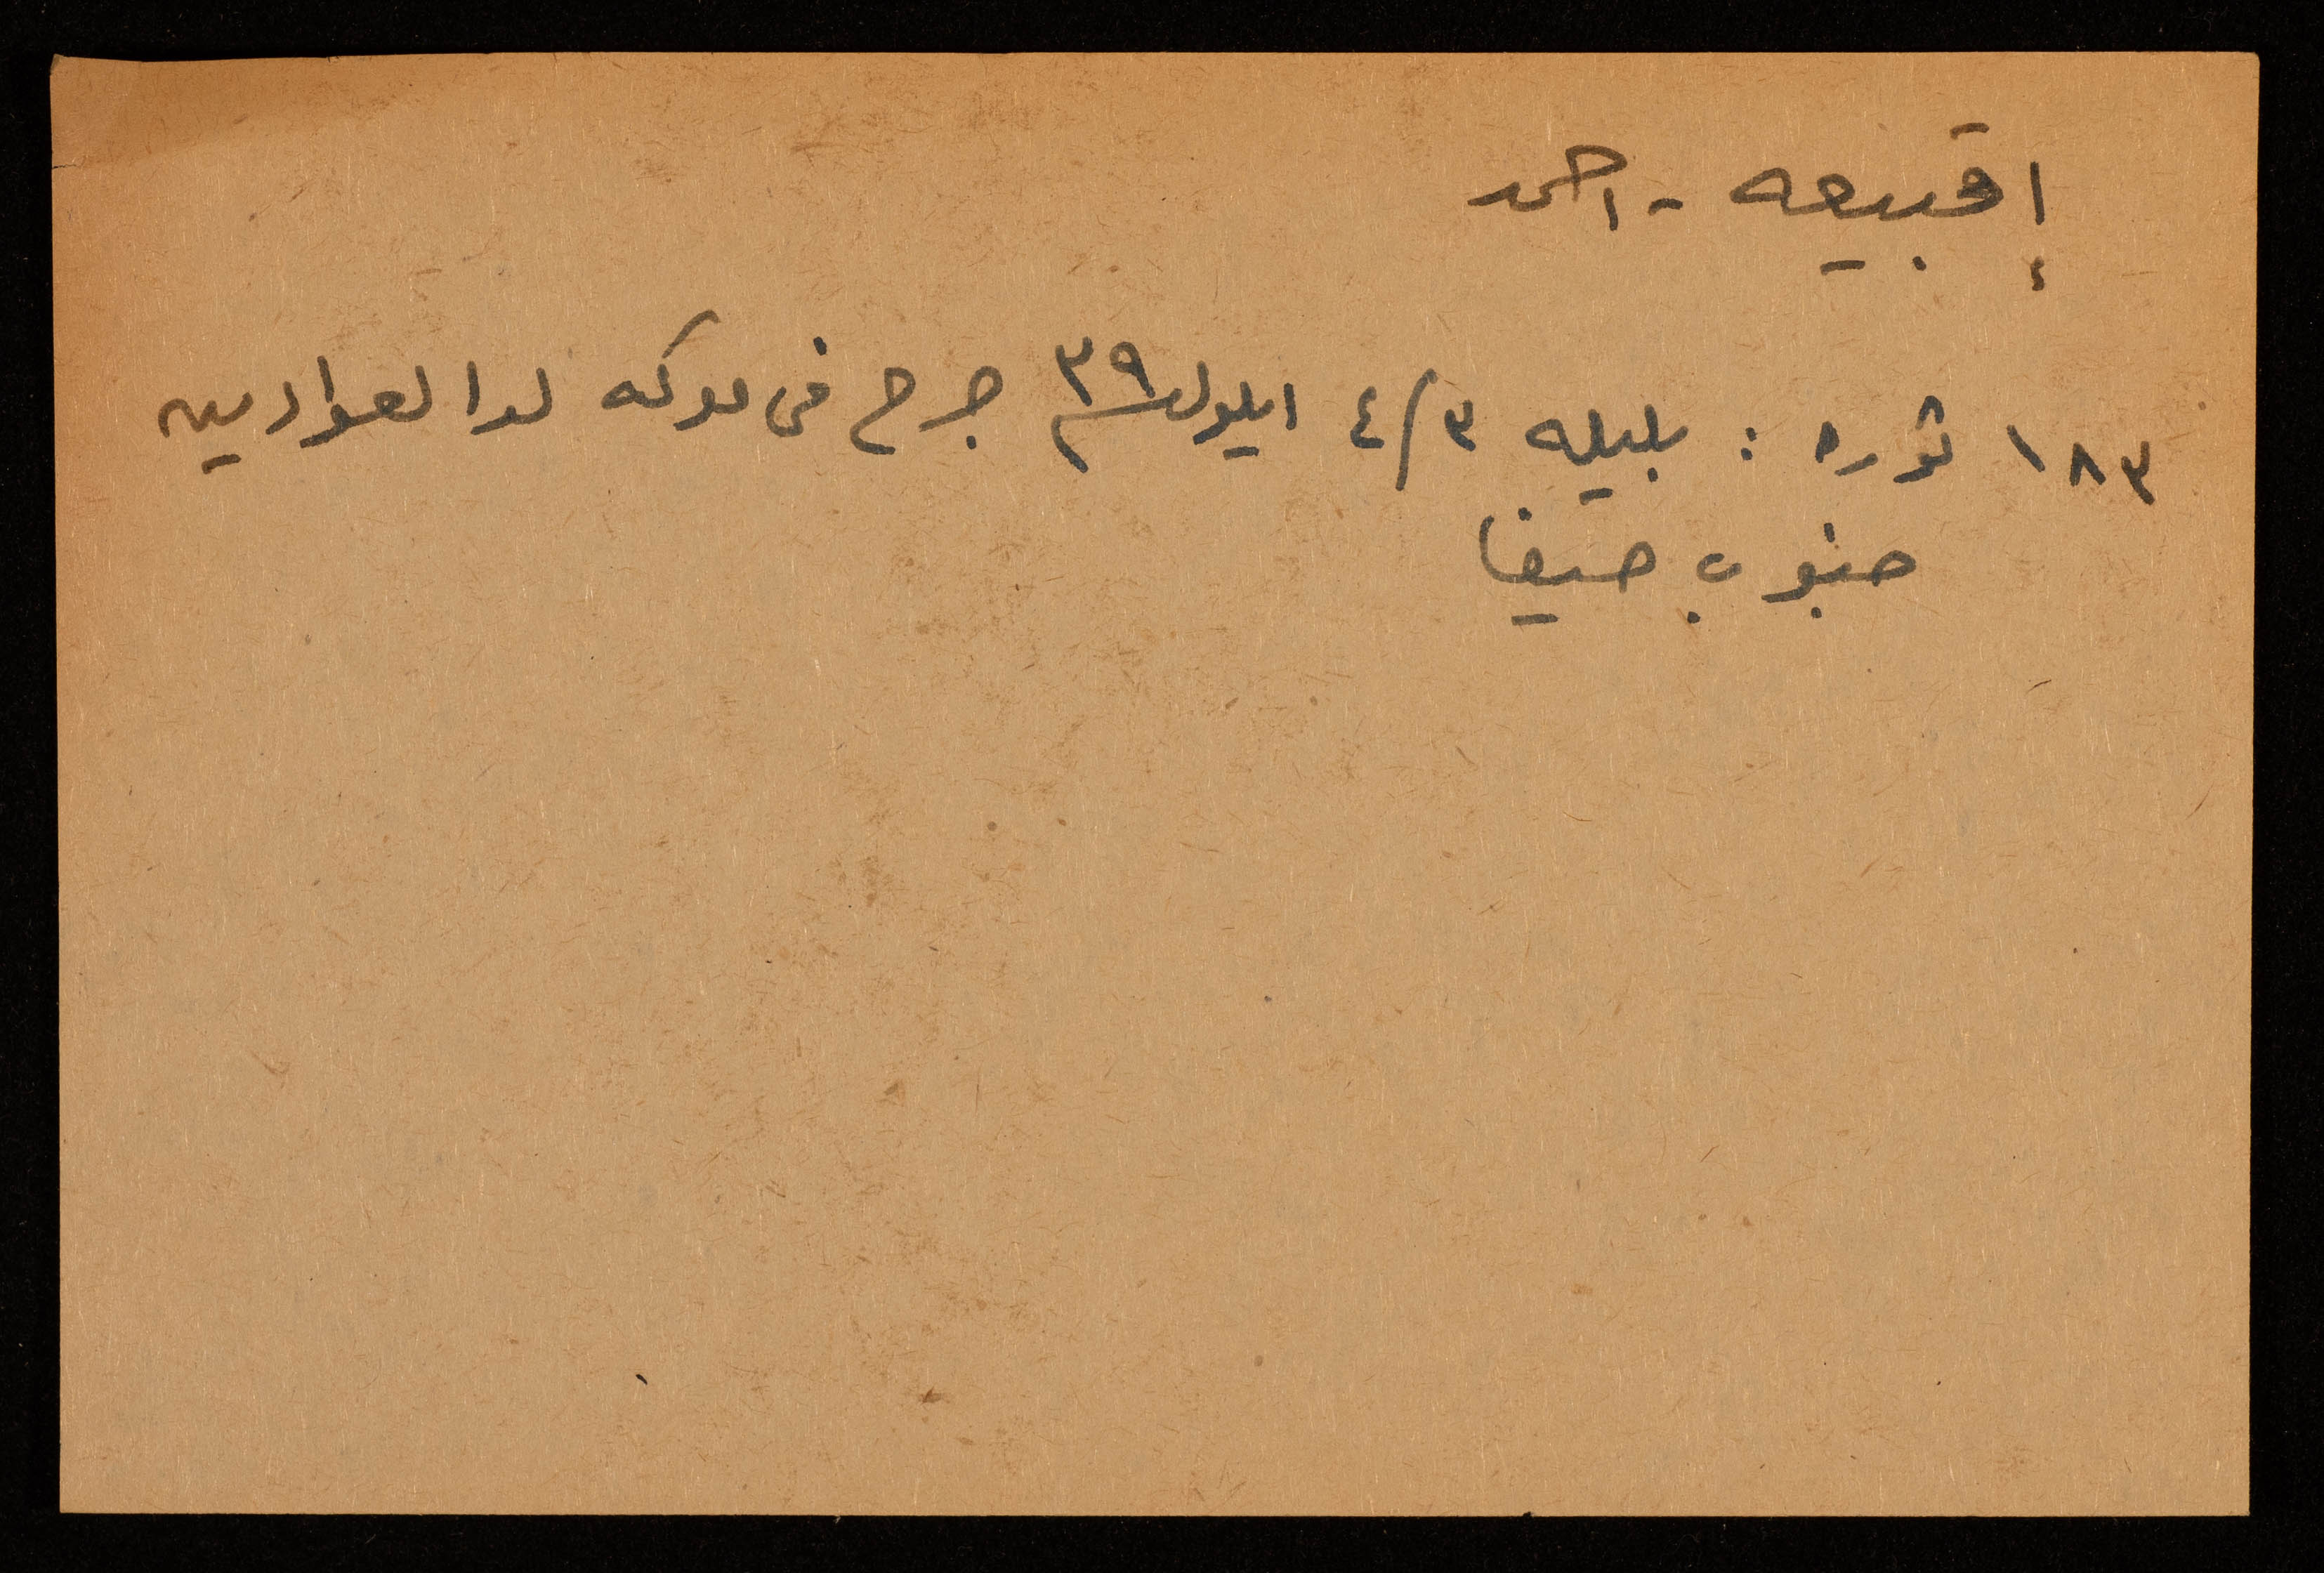 إقبيعه - احمد
١٨٣ ثوره : بليله ٤/٣ ايلول ٣٩ جرح في معركه لدا العوادين
جنوب حيفا